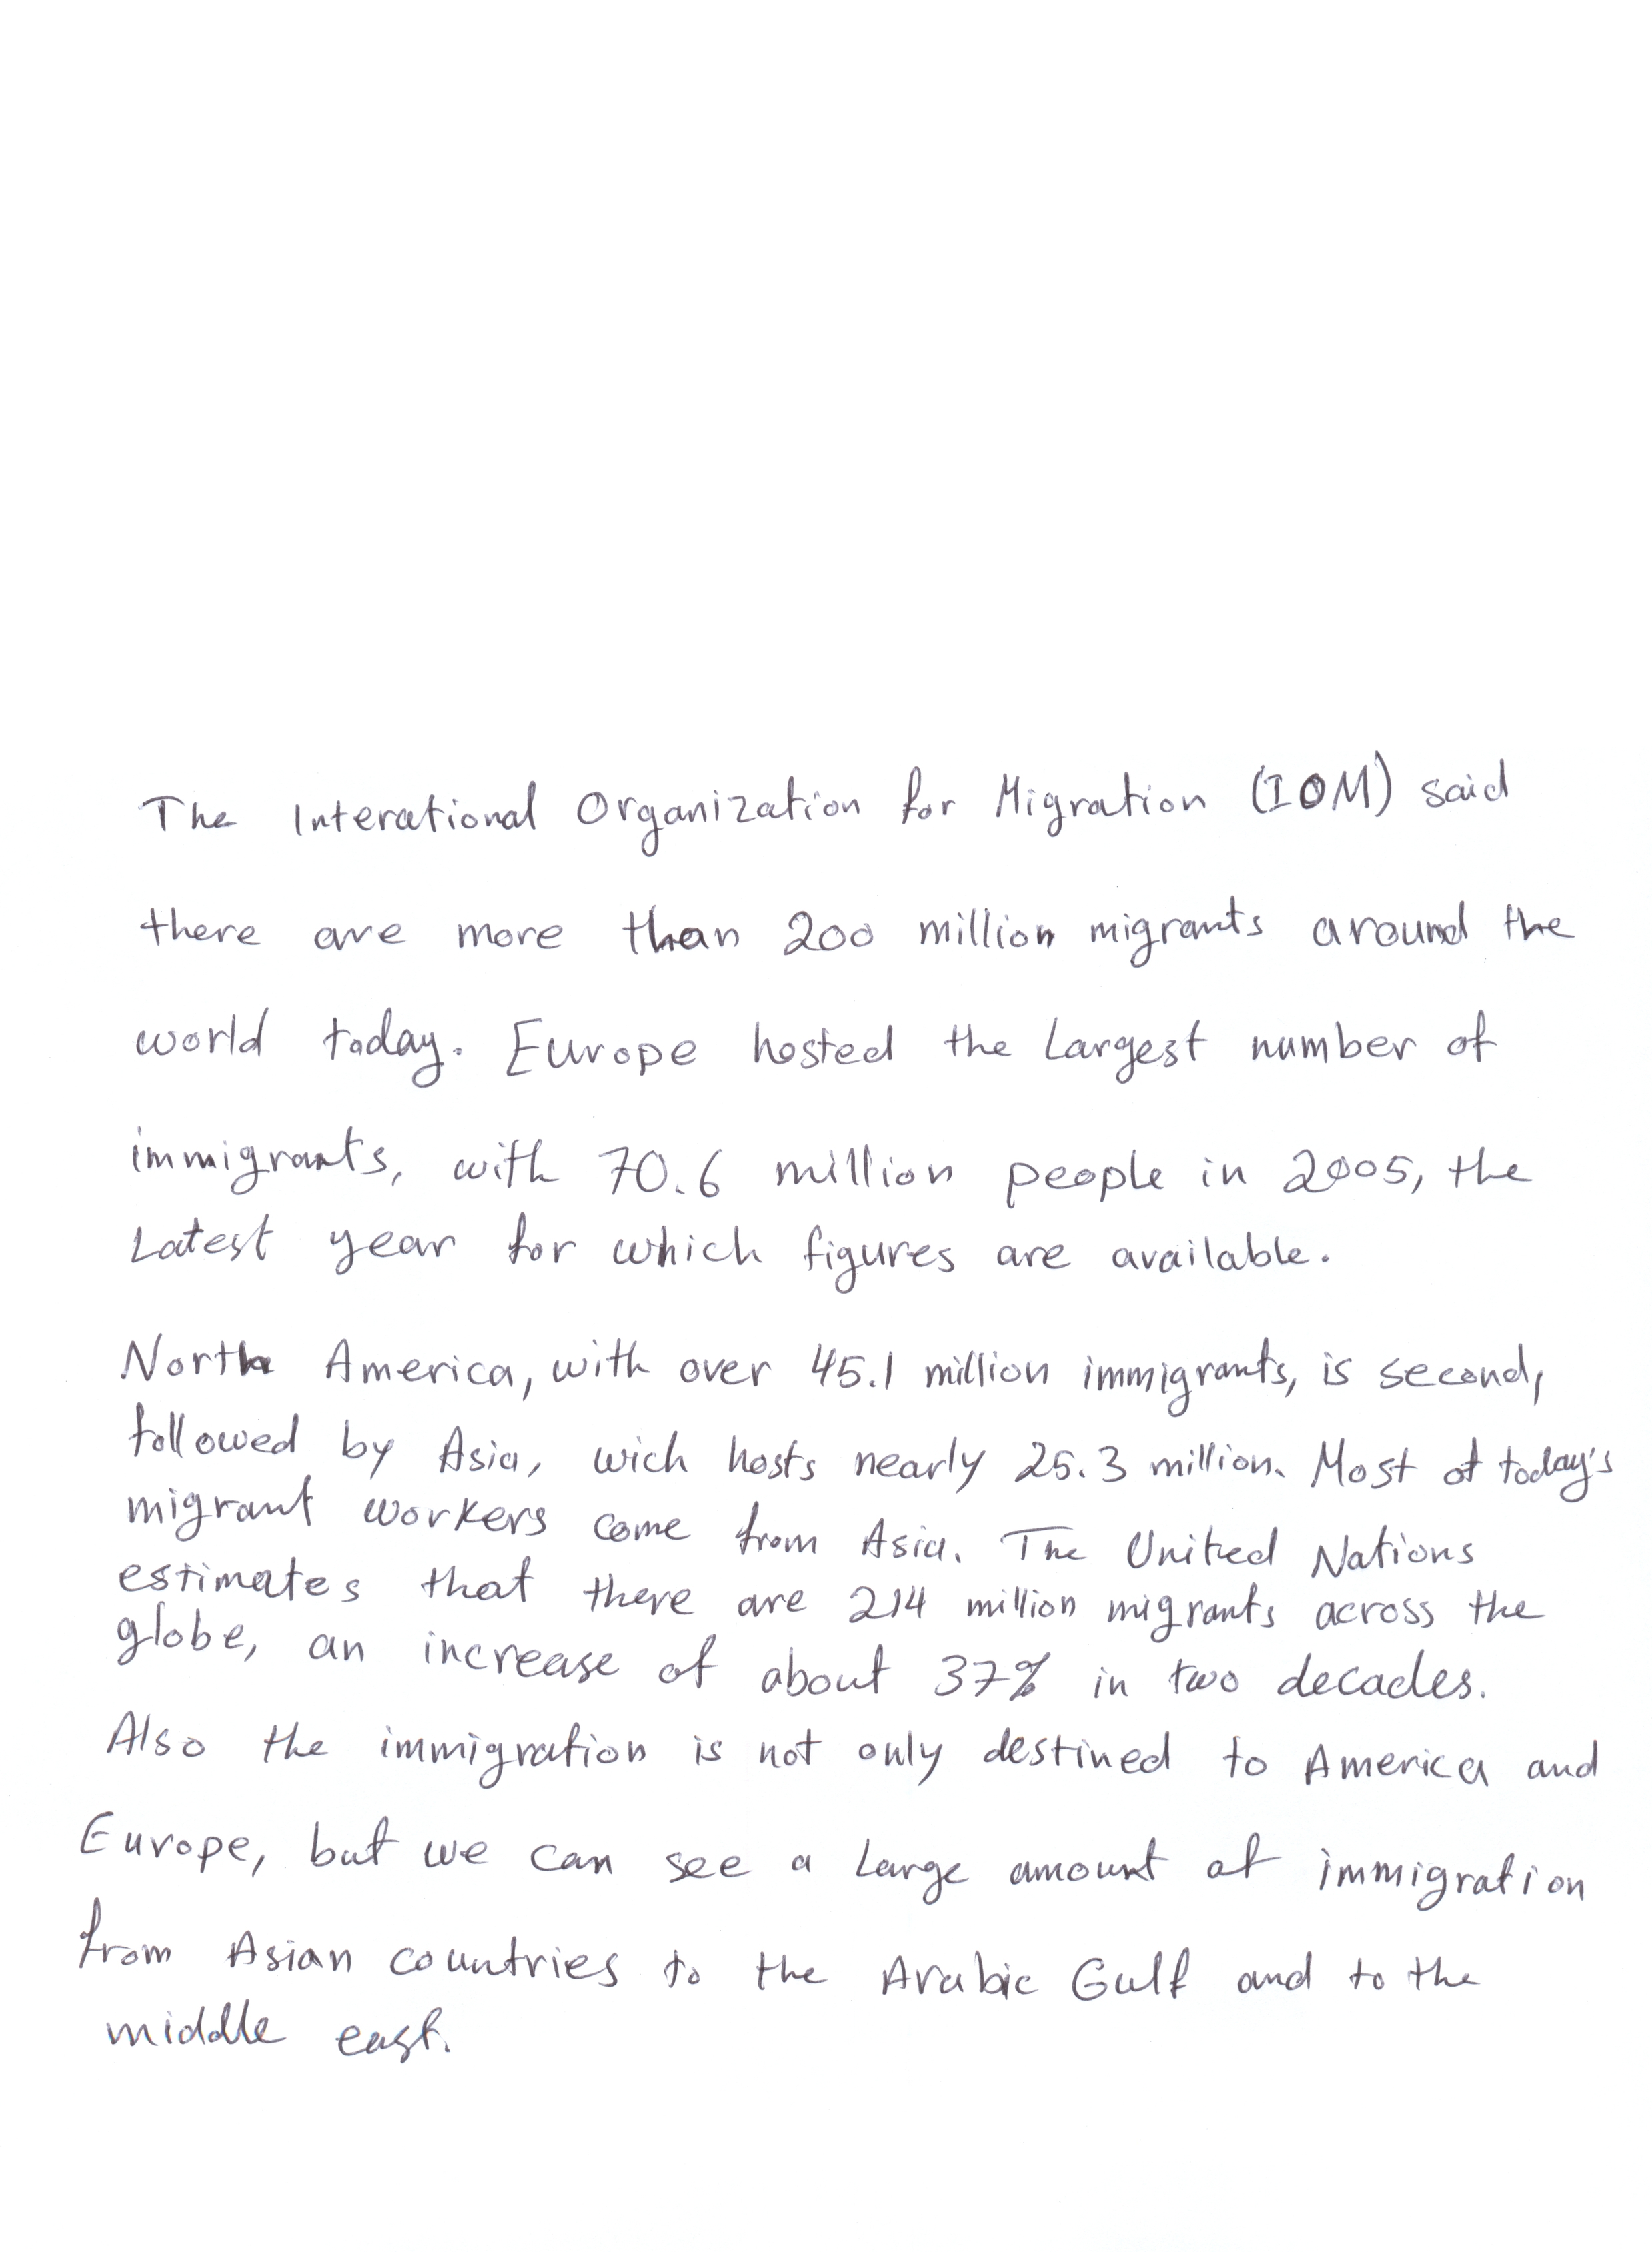 The Interational Organization for Migration (IOM) said
there are more than 200 million migrants around the
world today. Europe hosted the Largest number of
immigrants, with 70.6 million people in 2005, the
Latest year for which figures are available.
North America, with over 45.1 million immigrants, is second,
followed by Asia, wich hosts nearly 25.3 million. Most of today's
migrant workers come from Asia. The United Nations
estimates that there are 214 million migrants across the
globe, an increase of about 37% in two decades.
Also the immigration is not only destined to America and
Europe, but we can see a Large amount of immigration
from Asian countries to the Arabic Gulf and to the
middle east.